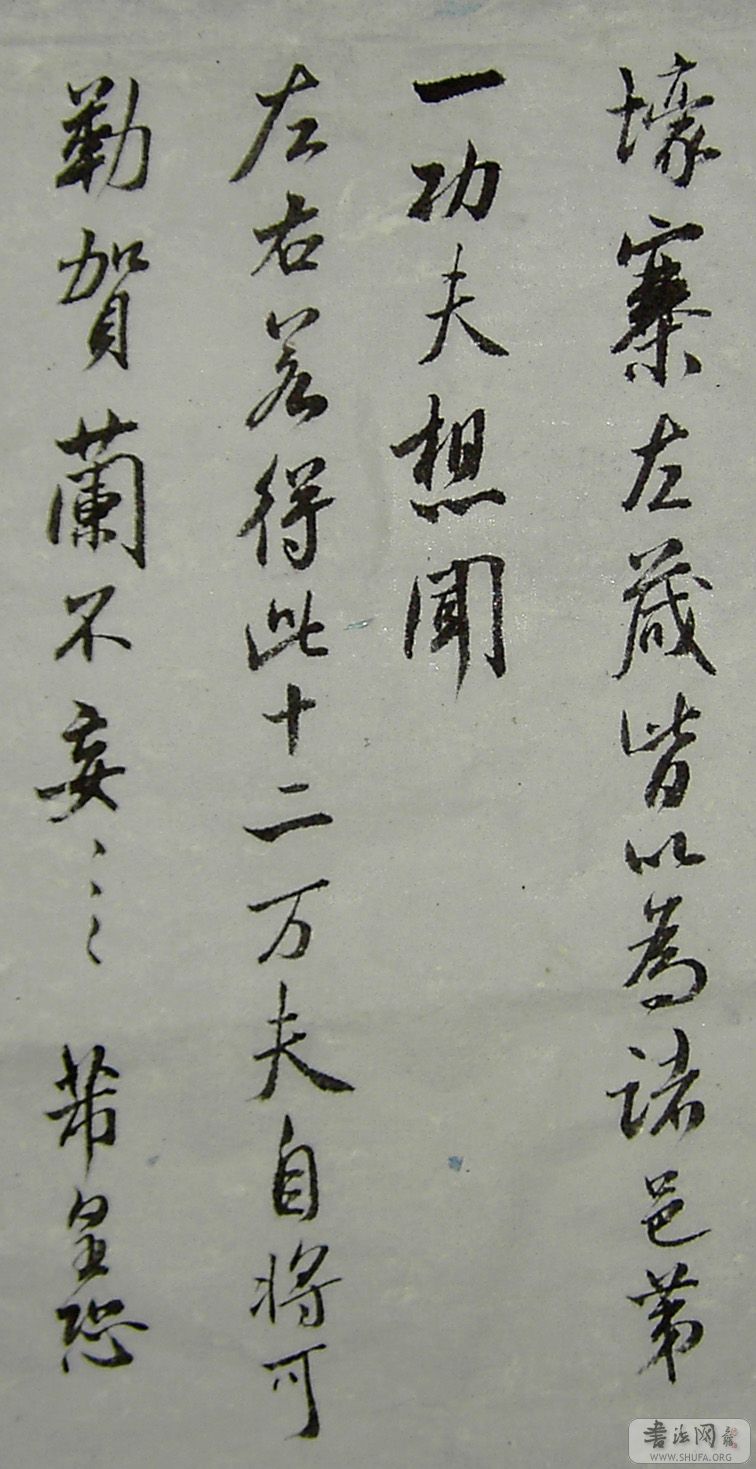 壕寨左藏皆以為諸邑第
一功夫想聞
左右若得此十二万夫自將可
勒賀蘭不妄〻〻 芾皇恐
書法网
WWW.SHUFA.ORG